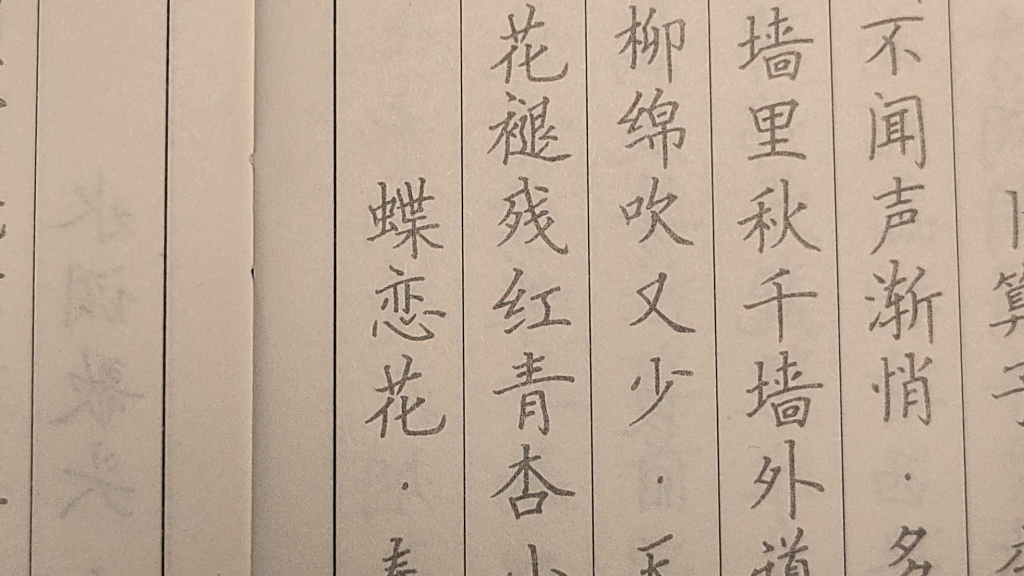 蝶恋花·
花褪残红青杏小
柳绵吹又少·天
墙里秋千墙外道
不闻声渐悄·多
卜算子